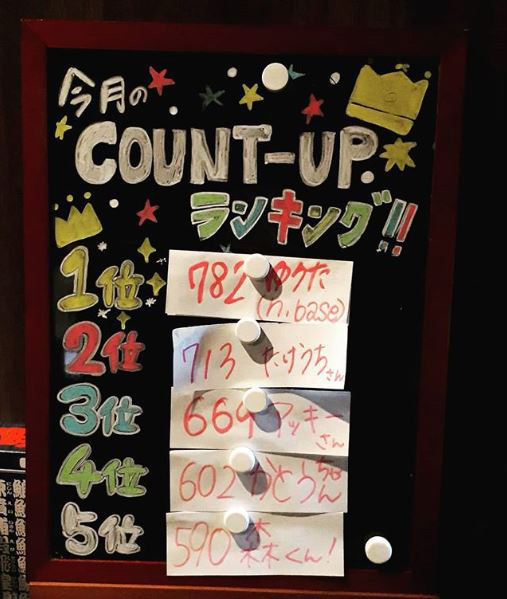 今月の
COUNT-UP
ランキング!!
1位 782 ゆうた
(n.base)
2位 713 たけうちさん
3位 669 アッキーさん
4位 602 かとうちょん
5位 590 森くん!